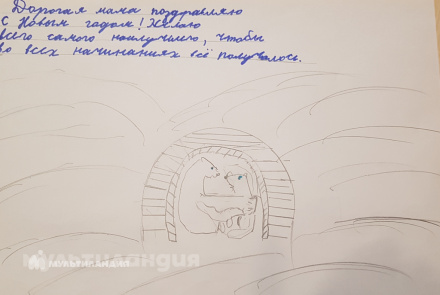 Дорогая мама поздравляю
С Новым годом! Желаю
всего самого наилучшего, чтобы
во всех начинаниях всё получалось.
мультиландия
МУЛЬТИЛАНДИЯ